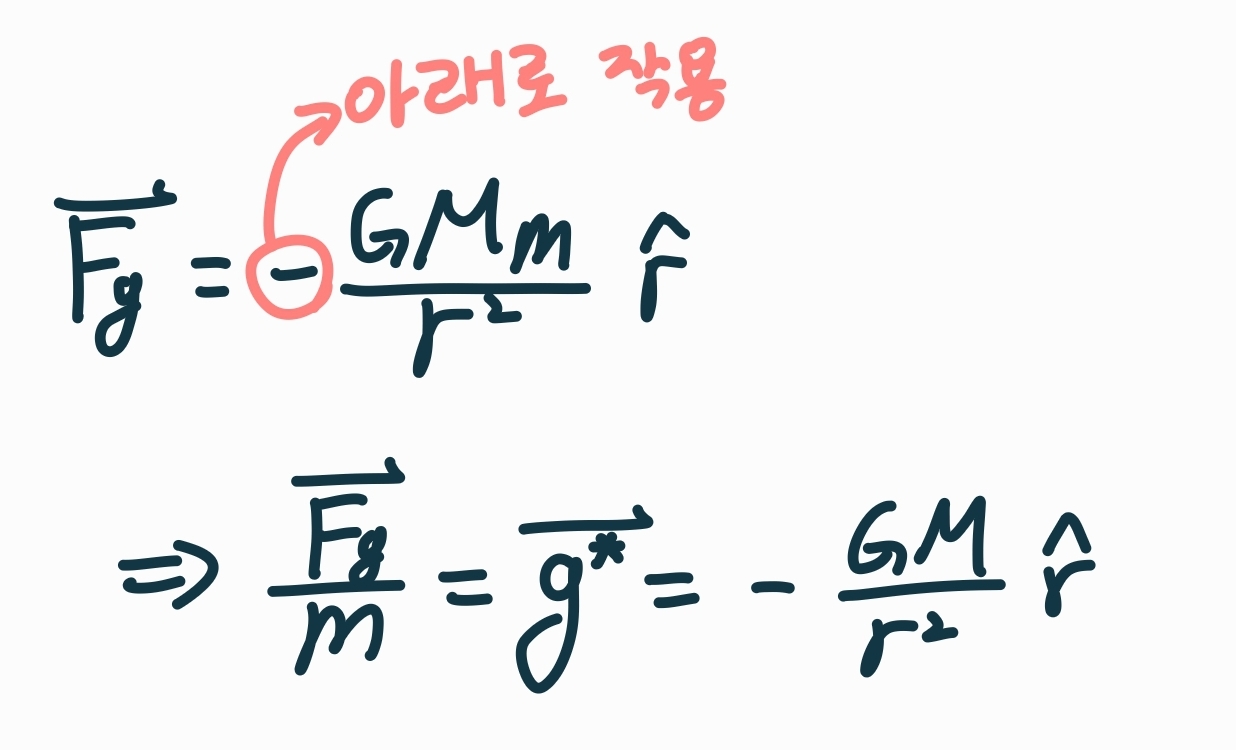 아래로 작용
$\overrightarrow{F_g} = - \frac{GMm}{r^2} \hat{r}$
$\Rightarrow \frac{\overrightarrow{F_g}}{m} = \overrightarrow{g^*} = - \frac{GM}{r^2} \hat{r}$